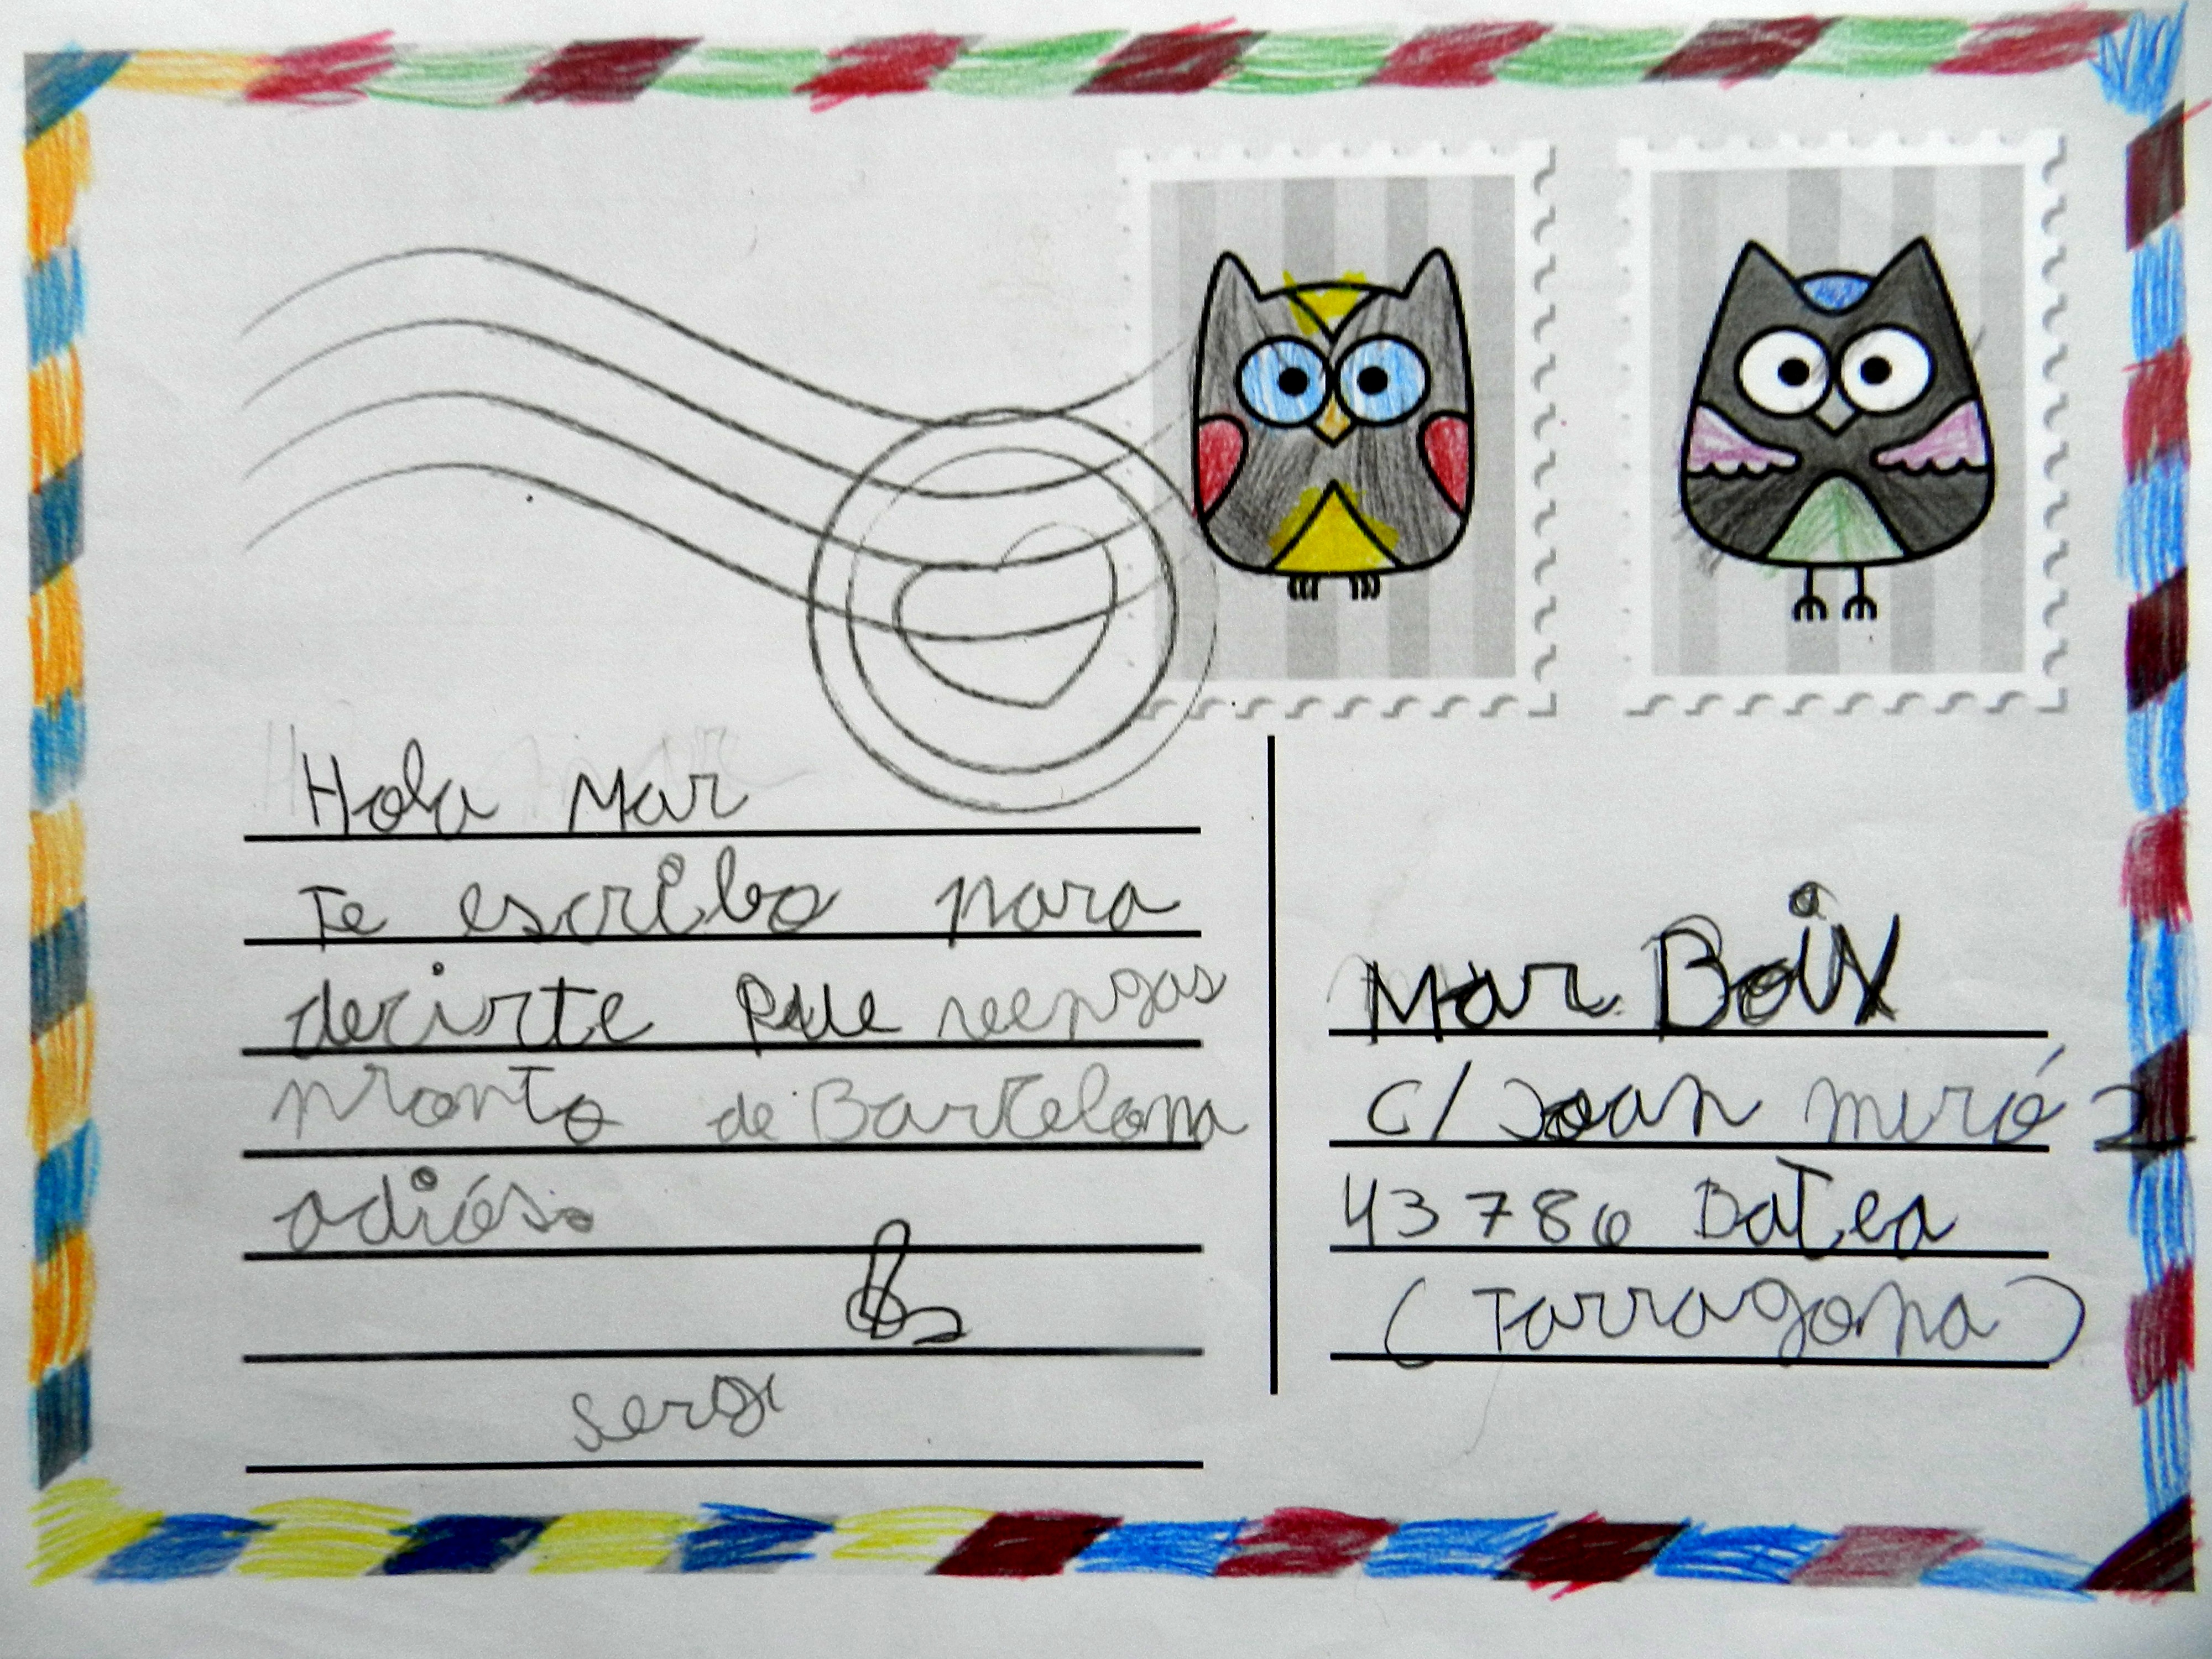 Hola Mar
Te escribo para
decirte que veengas
pronto de Barcelona
adiós.
Sergi
Mar Boix
C/ Joan miró 2
43786 Batea
(Tarragona)